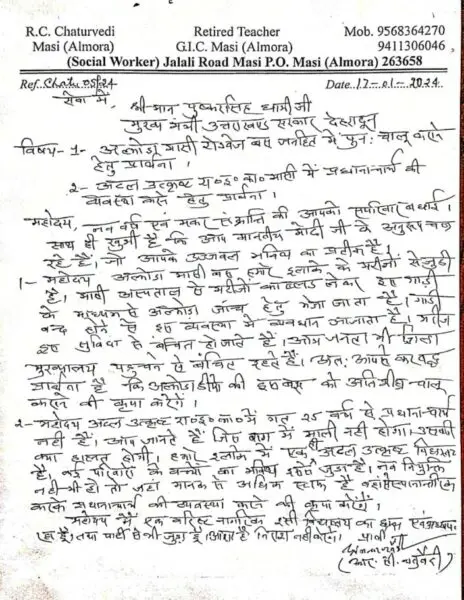 R.C. Chaturvedi Retired Teacher Mob. 9568364270
Masi (Almora) G.I.C. Masi (Almora) 9411306046
(Social Worker) Jalali Road Masi P.O. Masi (Almora) 263658
Ref. Chatu 05/24 Date 17-01-2024
सेवा में,
श्रीमान पुष्करसिंह धामी जी
मुख्य मंत्री उत्तराखण्ड सरकार देहरादून
विषय- 1- अल्मोड़ा मासी रोडवेज बस जनहित में पुनः चालू करने
हेतु प्रार्थना।
2- अटल उत्कृष्ट रा०इ०का० मासी में प्रधानाचार्य की
व्यवस्था करने हेतु प्रार्थना।
महोदय, नव वर्ष एवं मकर संक्रान्ति की आपको सपरिवार बधाई।
साथ ही खुशी है कि आप माननीय मोदी जी के अनुरूप चल
रहे हैं। जो आपके उज्जवल भविष्य का प्रतीक है।
1- महोदय अल्मोड़ा मासी बस हमारे इलाके के मरीजों से जुड़ी
है। मासी अस्पताल से मरीजों का ब्लड लेकर इस गाड़ी
के माध्यम से अल्मोड़ा जांच हेतु भेजा जाता है। गाड़ी
बन्द होने से इस व्यवस्था में व्यवधान आ जाता है। मरीज
इस सुविधा से बंचित हो जाते हैं। आम जनता भी जिला
मुख्यालय पहुचने से बंचित रहते हैं। अतः आपसे करबद्ध
प्रार्थना है कि अल्मोड़ा डीपो की इस बस को अतिशीघ्र चालू
कराने की कृपा करेंगे।
2- महोदय अटल उत्कृष्ट रा०इ०का० में गत 25 वर्ष से प्रधानाचार्य
नहीं हैं। आप जानते हैं जिस बाग में माली नहीं होगा उसकी
क्या हालत होगी। हमारे इलाके में एक अटल उत्कृष्ट विद्यालय
है, कई परिवार के बच्चों का भविष्य इससे जुड़ा है। नव नियुक्ति
नहीं भी हो तो जहां मानक से अधिक स्टाफ है वहां से स्थानान्तरित
करके प्रधानाचार्य की व्यवस्था करने की कृपा करेंगे।
महोदय मैं एक वरिष्ठ नागरिक इसी विद्यालय का छात्र एवं अध्यापक
रहा हूँ। तथा पार्टी से भी जुड़ा हूँ। आशा है निराश नहीं करेंगे। प्रार्थी
(आर. सी. चतुर्वेदी)